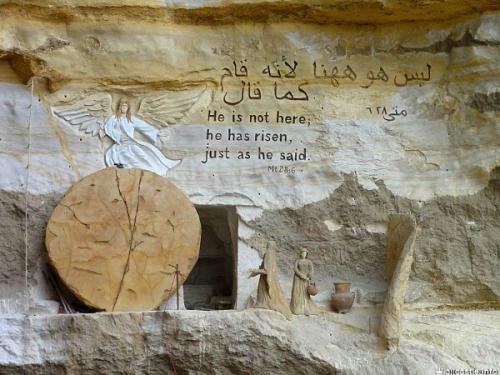 ليس هو ههنا لأنه قام
كما قال
متى ٢٨: ٦
He is not here;
he has risen,
just as he said.
Mt 28:6